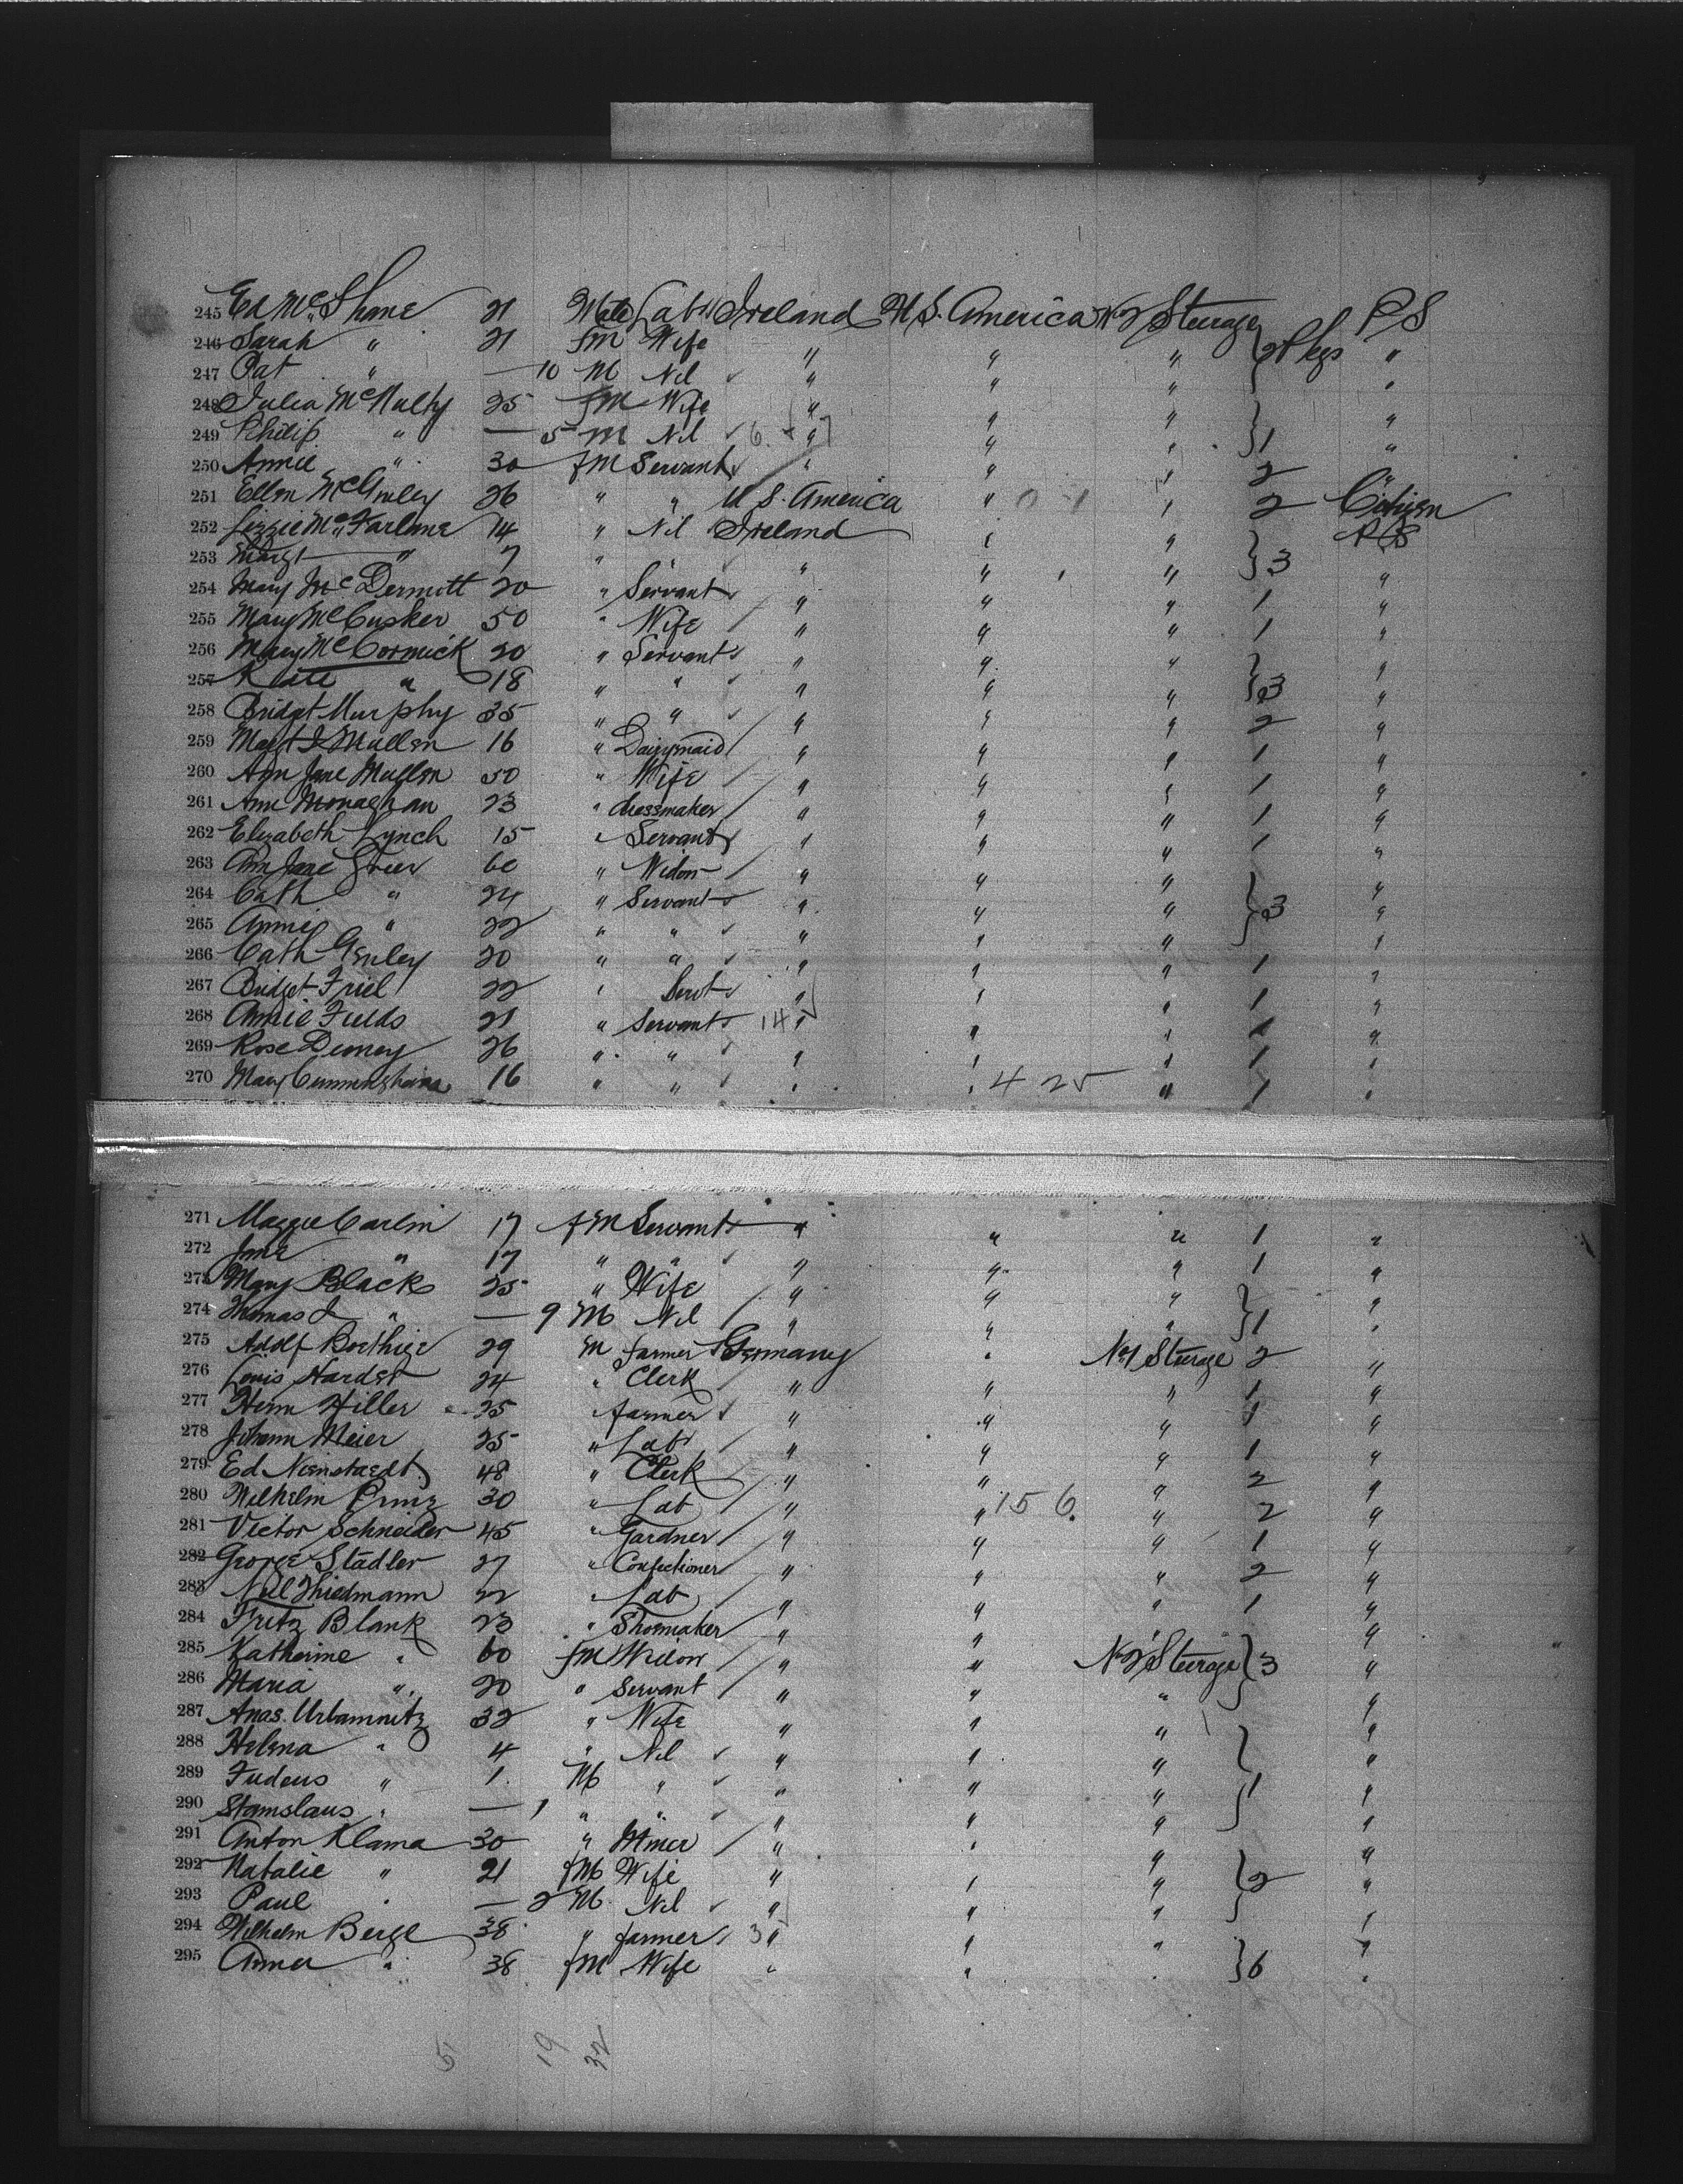 245 Ed McShane 21 Male Labr Ireland U.S. America No 2 Steerage 2 Pkgs P S
246 Sarah " 21 fM Wife " " " "
247 Pat " — 10 M Nil " " " "
248 Julia McNulty 25 fM Wife " " " "
249 Philip " — 5 M Nil " " " 1 "
250 Annie " 30 fM Servant " " " 2 "
251 Ellen McGinley 26 " " U S. America " " 2 Citizen
252 Lizzie McFarlane 14 " Nil Ireland " " P S
253 Margt " 7 " " " " 3 "
254 Mary McDermott 20 " Servant " " " 1 "
255 Mary McCusker 50 " Wife " " " 1 "
256 Mary McCormick 20 " Servant " " " "
257 Kate " 18 " " " " " 3 "
258 Bridget Murphy 35 " " " " " 2 "
259 Margt J Mullen 16 " Dairymaid " " " 1 "
260 Ann Jane Mullen 50 " Wife " " " 1 "
261 Ann Monaghan 23 " dressmaker " " " 1 "
262 Elizabeth Lynch 15 " Servant " " " 1 "
263 Ann Jane Greer 60 " Widow " " " "
264 Cath " 24 " Servant " " " 3 "
265 Annie " 22 " " " " " "
266 Cath Genley 20 " " " " " 1 "
267 Bridget Friel 22 " Servt " " " 1 "
268 Annie Fields 21 " Servant 14 " " " 1 "
269 Rose Deeney 26 " " " " " 1 "
270 Mary Cunningham 16 " " " " 4 25 " 1 "
271 Maggie Carlin 17 fM Servant " " " 1 "
272 Jane " 17 " " " " " 1 "
273 Mary Black 25 " Wife " " " "
274 Thomas J " — 9 M Nil " " " 1 "
275 Adolf Boethige 29 M farmer Germany " No 1 Sturage 2 "
276 Louis Hardet 24 " Clerk " " " 1 "
277 Herm Hiller 25 " farmer " " " 1 "
278 Johann Meier 25 " Labr " " " 1 "
279 Ed Nienstaedt 48 " Clerk " " " 2 "
280 Wilhelm Prinz 30 " Lab " " 15 6. " 2 "
281 Victor Schneider 45 " Gardner " " " 1 "
282 George Stadler 27 " Confectioner " " " 2 "
283 Thiedmann 22 " Lab " " " 1 "
284 Fritz Blank 23 " Shoemaker " " " "
285 Katherine " 60 fM Widow " " No 2 Steerage 3 "
286 Maria " 20 " Servant " " " "
287 Anas. Urbannitz 32 " Wife " " " "
288 Helena " 4 " Nil " " " "
289 " 1 M " " " " 1 "
290 Stanislaus " — 1 " " " " " "
291 Anton Klama 30 " Miner " " " "
292 Natalie " 21 fM Wife " " " 2 "
293 Paul " — 2 M Nil " " " "
294 Wilhelm Berge 38 " farmer 3 " " " "
295 Anna " 38 fM Wife " " " 6 "
5 19 32